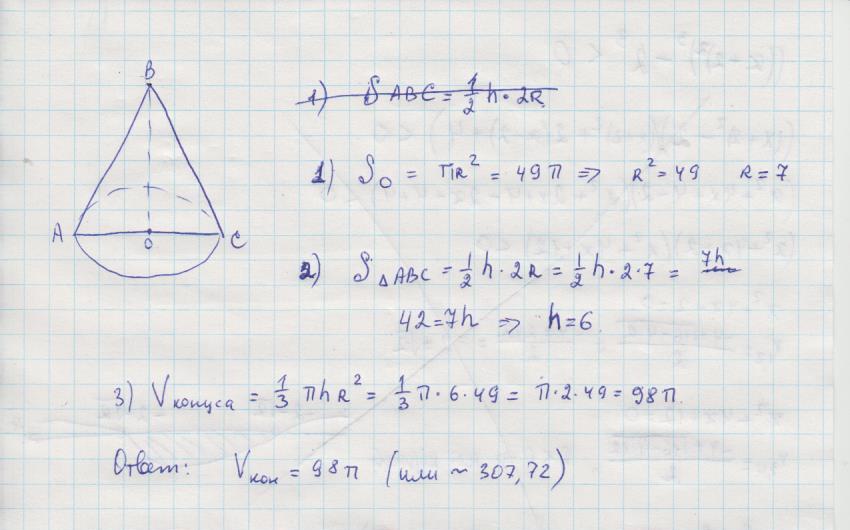 B
A O C
1) S ABC = 1/2 h · 2R
1) S₀ = πR² = 49π => R² = 49 R = 7
2) S△ABC = 1/2 h · 2R = 1/2 h · 2 · 7 = 7h
42 = 7h => h = 6.
3) Vконуса = 1/3 πhR² = 1/3 π · 6 · 49 = π · 2 · 49 = 98π.
Ответ: Vкон = 98π (или ~ 307,72)